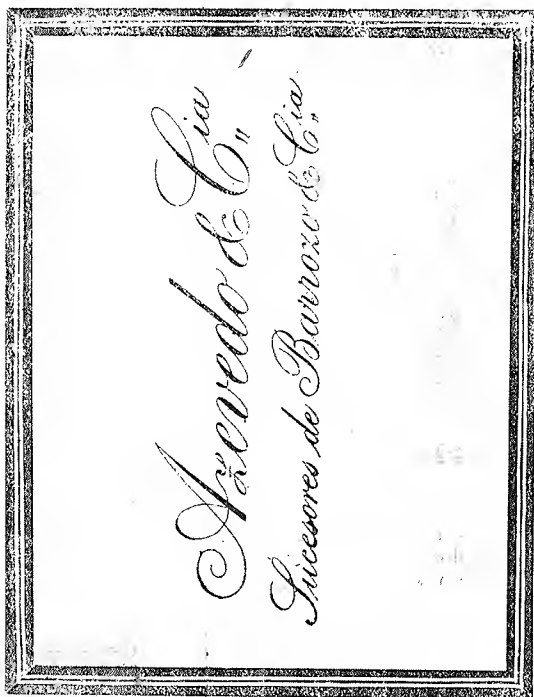 Azevedo & Cia„
Sucesores de Barrozo & Cia„